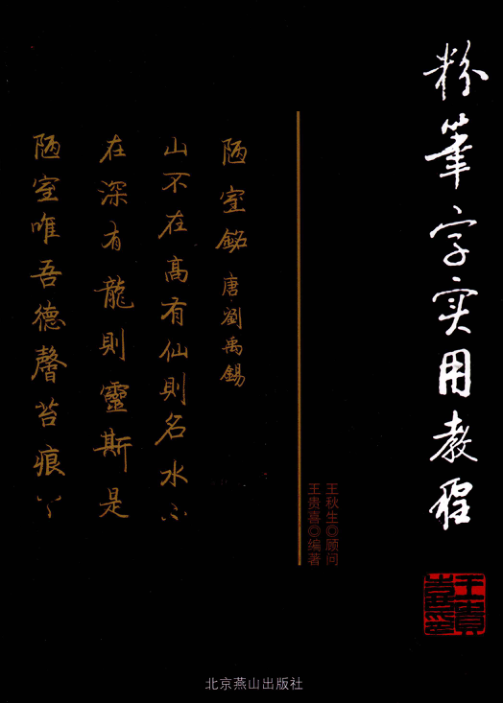 粉筆字实用教程
王秋生◎顾问
王贵喜◎编著
陋室銘 唐·劉禹錫
山不在高有仙則名水不
在深有龍則靈斯是
陋室唯吾德馨苔痕
北京燕山出版社